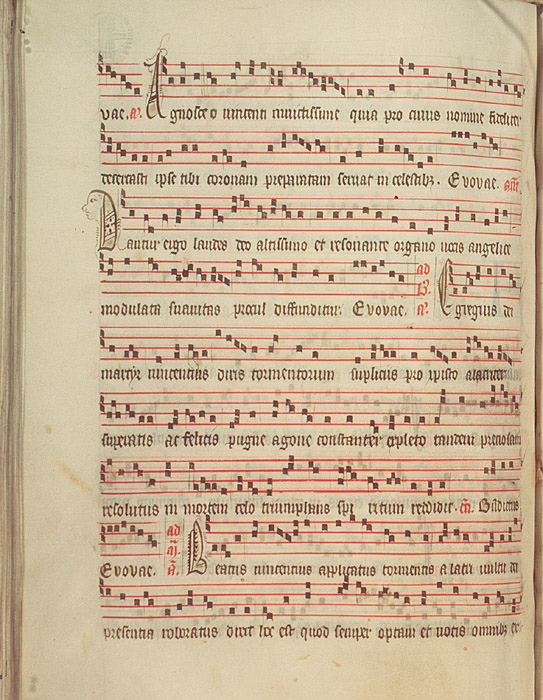 vae. a. Agnosce o vincenti invictissime quia pro cuius nomine fideliter
decertasti ipse tibi coronam preparatam servat in celestibz. Evovae. añ.
Dantur ergo laudes deo altissimo et resonante organo vocis angelice
modulata suavitas procul diffunditur. Evovae. ad B. a. Egregius dei
martyr vincentius diris tormentorum suppliciis pro xpisto
superatis ac felicis pugne agone constanter expleto tandem preciosam
resolutus in mortem celo triumphans spiritum reddidit. Bñdictus
Evovae. ad ij. Beatus vincentius applicatus tormentis alacri vultu dei
presentia roboratus dixit hoc est quod semper optavi et votis omnibz ex